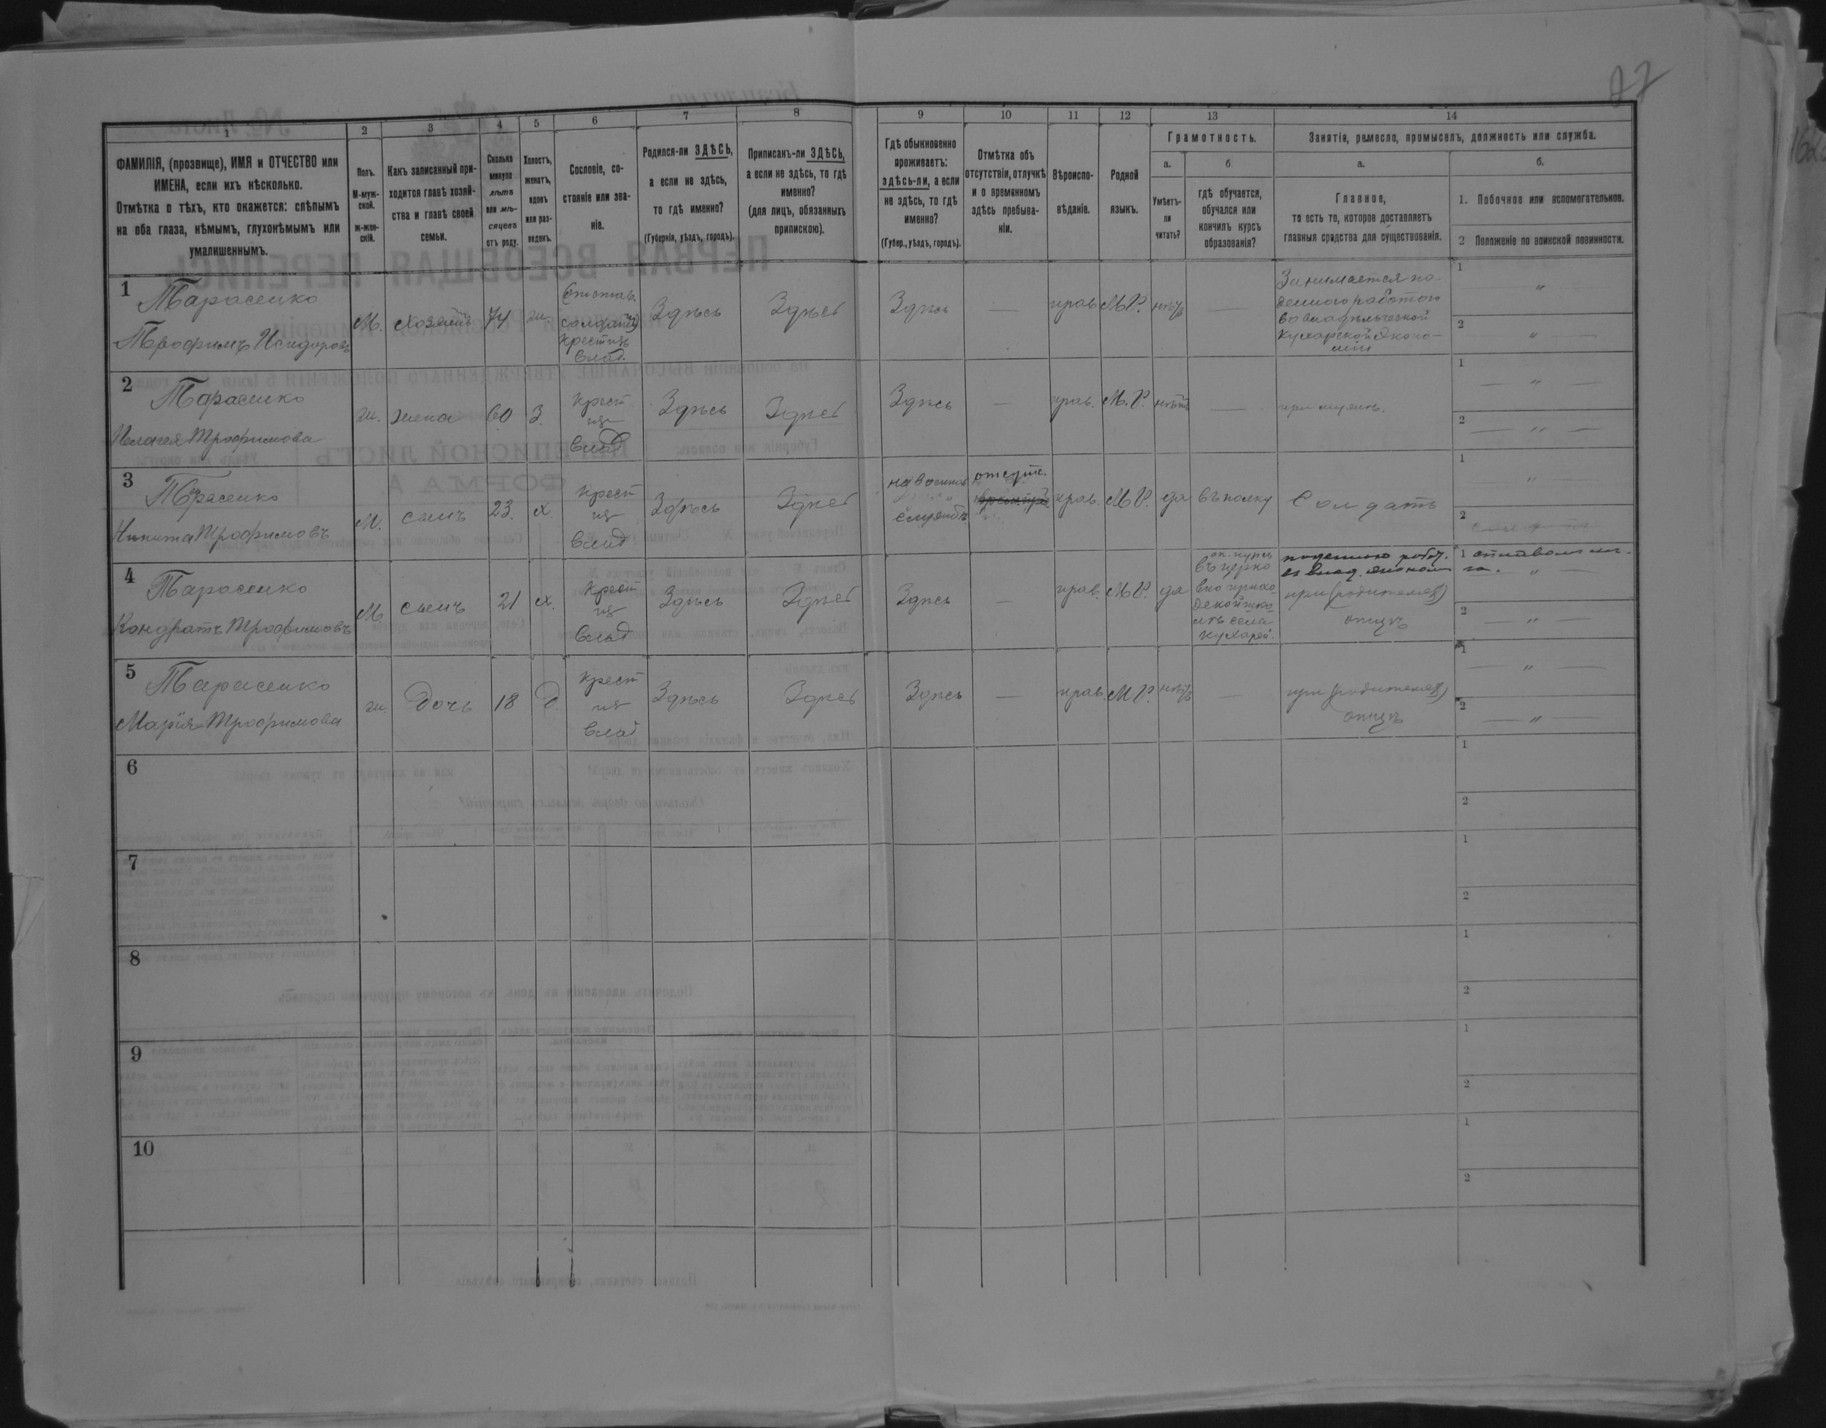 77
1 2 3 4 5 6 7 8 9 10 11 12 13 14
ФАМИЛІЯ, (прозвище), ИМЯ и ОТЧЕСТВО или
ИМЕНА, если ихъ нѣсколько.
Отмѣтка о тѣхъ, кто окажется: слѣпымъ
на оба глаза, нѣмымъ, глухонѣмымъ или
умалишеннымъ.
Полъ.
М-муж-
ской.
ж-жен-
скій.
Какъ записанный при-
ходится главѣ хозяй-
ства и главѣ своей
семьи.
Сколько
минуло
лѣтъ
или мѣ-
сяцевъ
отъ роду.
Холостъ,
женатъ,
вдовъ
или раз-
веденъ.
Сословіе, со-
стояніе или зва-
ніе.
Родился-ли ЗДѢСЬ,
а если не здѣсь,
то гдѣ именно?
(Губернія, уѣздъ, городъ).
Приписанъ-ли ЗДѢСЬ,
а если не здѣсь, то гдѣ
именно?
(для лицъ, обязанныхъ
припискою).
Гдѣ обыкновенно
проживаетъ:
здѣсь-ли, а если
не здѣсь, то гдѣ
именно?
(Губер., уѣздъ, городъ).
Отмѣтка объ
отсутствіи, отлучкѣ
и о временномъ
здѣсь пребыва-
ніи.
Вѣроиспо-
вѣданіе.
Родной
языкъ.
Грамотность.
а.
Умѣетъ-
ли
читать?
б
гдѣ обучается,
обучался или
кончилъ курсъ
образованія?
Занятія, ремесло, промыселъ, должность или служба.
а.
Главное,
то есть то, которое доставляетъ
главныя средства для существованія.
б.
1. Побочное или вспомогательное.
2 Положеніе по воинской повинности.
1
Тарасенко
Трофимъ Исидоровъ
М.
хозяинъ
74
ж.
Отстав.
солдатъ
крест из
влад.
Здѣсь
Здѣсь
Здѣсь
—
прав
М.Р.
нѣтъ
—
Занимается по-
денною работою
во владѣльческой
Кухарской эконо-
міи
1 "
2 "
2
Тарасенко
Пелагея Трофимова
ж.
жена
60
З.
крест
из
влад
Здѣсь
Здѣсь
Здѣсь
—
прав.
М.Р.
нѣтъ
—
при мужѣ.
1 — " —
2 — " —
3
Тарасенко
Никита Трофимовъ
М.
сынъ
23.
х
крест
из
влад
Здѣсь
Здѣсь
на военной
службѣ
отсутс.
прав.
М.Р.
да
въ полку
Солдатъ
1 "
2
4
Тарасенко
Кондратъ Трофимовъ
М
сынъ
21
х.
крест
из
влад
Здѣсь
Здѣсь
Здѣсь
—
прав.
М.Р.
да
ок. курс
въ церко
вно приход
ской шко
лѣ села
Кухарей.
поденно работ.
въ влад. эконом
при (родителяхъ)
отцѣ
1 "
2 — " —
5
Тарасенко
Марія Трофимова
ж.
дочь
18
д
крест
из
влад
Здѣсь
Здѣсь
Здѣсь
—
прав.
М.Р.
нѣтъ
—
при (родителяхъ)
отцѣ
1 — " —
2 — " —
6
1
2
7
1
2
8
1
2
9
1
2
10
1
2